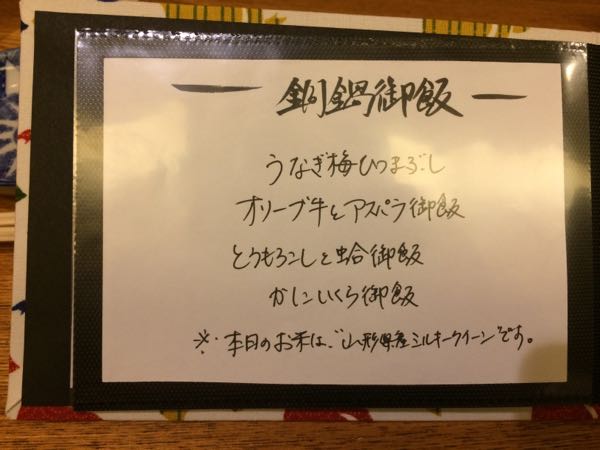 銅鍋御飯
うなぎ梅ひつまぶし
オリーブ牛とアスパラ御飯
とうもろこしと蛤御飯
かにいくら御飯
※本日のお米は、"山形県産ミルキークイーン"です。